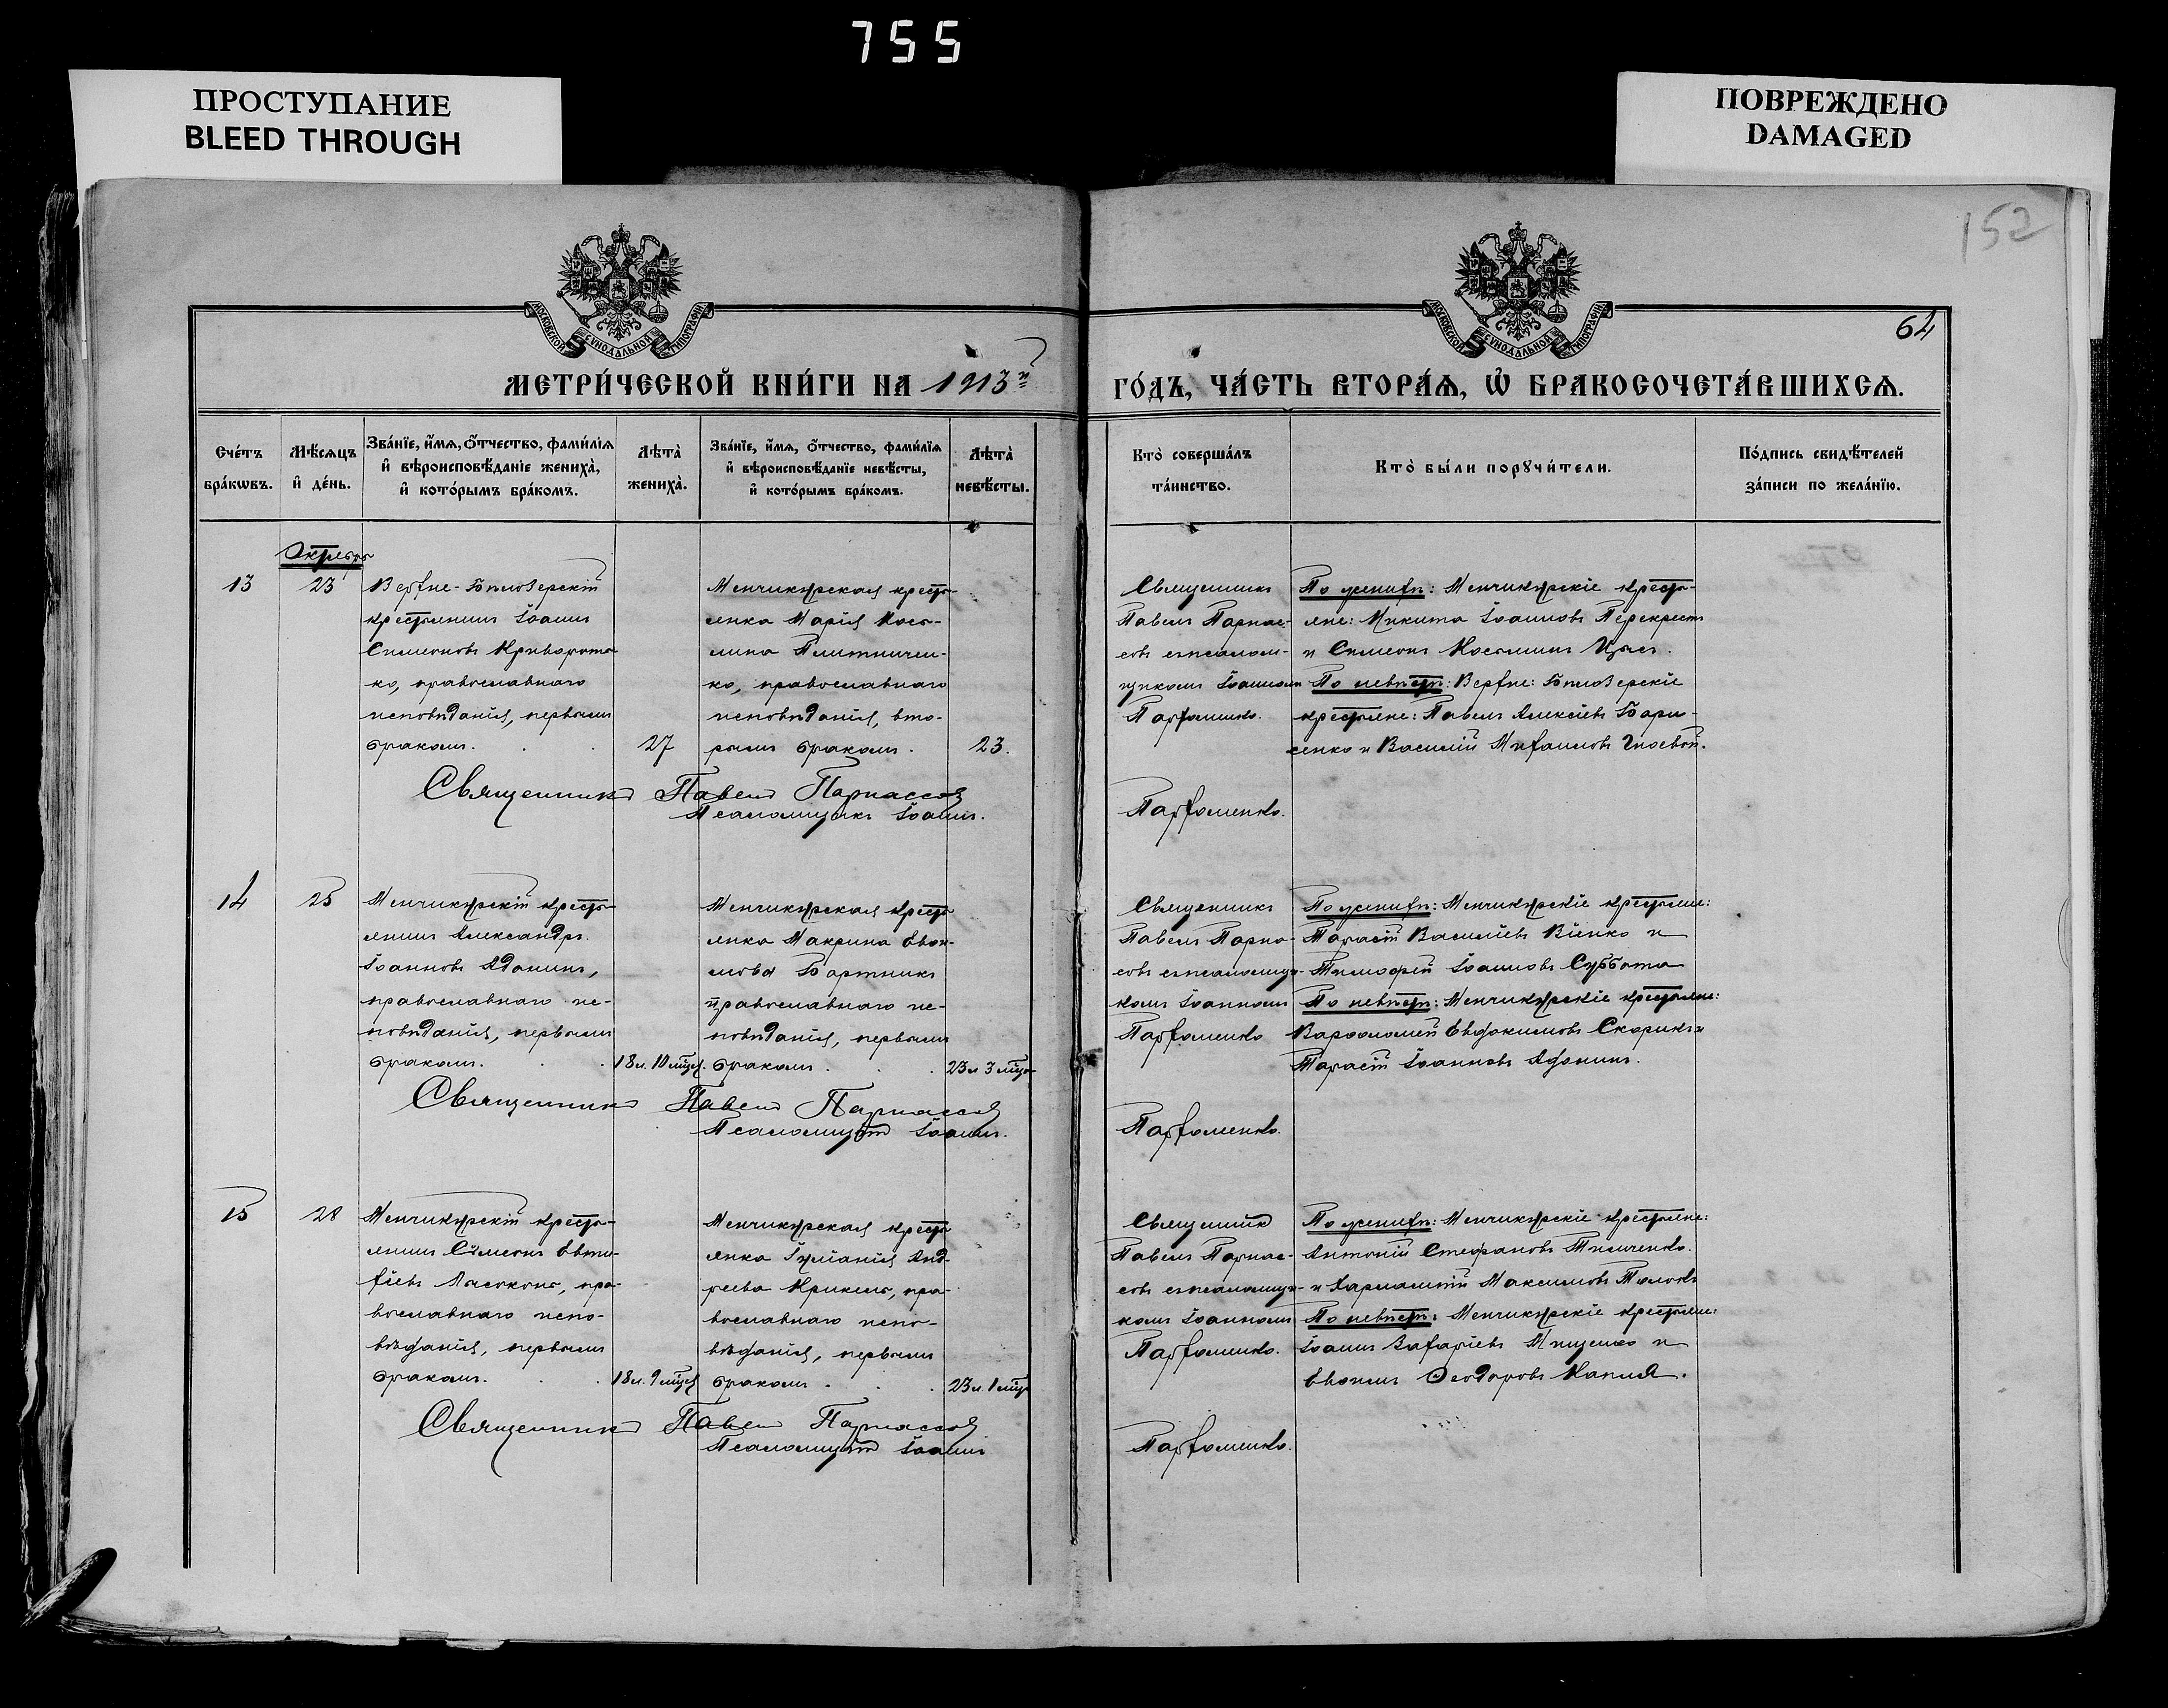 755
ПРОСТУПАНИЕ
BLEED THROUGH
ПОВРЕЖДЕНО
DAMAGED
152
МОСКОВСКОЙ СѴНОДАЛЬНОЙ ТИПОГРАФІИ
МОСКОВСКОЙ СѴНОДАЛЬНОЙ ТИПОГРАФІИ
64
МЕТРИ́ЧЕСКОЙ КНИ́ГИ НА 1913й
ГО́ДЪ, ЧА́СТЬ ВТОРА́Я, Ѡ҆ БРАКОСОЧЕТА́ВШИХСЯ.
Сче́тъ бра́кѡвъ.
Мѣ́сяцъ и҆ де́нь.
Зва́нїе, и҆́мя, ѻ҆́тчество, фами́лїя и҆ вѣроисповѣ́данїе жениха̀, и҆ кото́рымъ бра́комъ.
Лѣта̀ жениха̀.
Зва́нїе, и҆́мя, ѻ҆́тчество, фами́лїя и҆ вѣроисповѣ́данїе невѣ́сты, и҆ кото́рымъ бра́комъ.
Лѣта̀ невѣ́сты.
Кто̀ соверша́лъ та́инство.
Кто̀ бы́ли порꙋчи́тели.
По́дпись свидѣ́телей за́писи по жела́нїю.
Октябрь
13
23
Верхне-Бѣлозерскій
крестьянинъ Іоаннъ
Симеоновъ Кривороть-
ко, православнаго
исповѣданія, первымъ
бракомъ.
27
Менчикурская кресть-
янка Марія Косъ-
мина Плитничен-
ко, православнаго
исповѣданія, вто-
рымъ бракомъ.
23.
Священникъ
Павелъ Парнас-
совъ съ псалом-
щикомъ Іоанномъ
Парфоменко.
По женихѣ: Менчикурскіе кресть-
яне: Никита Іоанновъ Перекрестъ
и Симеонъ Косьминъ
По невѣстѣ: Верхне-Бѣлозерскіе
крестьяне: Павелъ Алексіевъ Бори-
сенко и Василій Михаиловъ Гноевой.
Священникъ Павелъ Парнассовъ
Псаломщикъ Іоаннъ
Парфоменко.
14
25
Менчикурскій кресть-
янинъ Александръ
Іоанновъ Адонинъ,
православнаго ис-
повѣданія, первымъ
бракомъ.
18 л. 10 мцев.
Менчикурская кресть
янка Макрина
Бортникъ
православнаго ис-
повѣданія, первымъ
бракомъ.
23 л 3 мца
Священникъ
Павелъ Парна-
совъ съ псаломщи-
комъ Іоанномъ
Парфоменко
По женихѣ: Менчикурскіе крестьяне:
Тарасій Василіевъ и
Тимофей Іоанновъ Суббота
По невѣстѣ: Менчикурскіе крестьяне:
Варфоломей Евдокимовъ Скорикъ и
Тарасій Іоанновъ Адонинъ.
Священникъ Павелъ Парнассовъ
Псаломщикъ Іоаннъ
Парфоменко.
15
28
Менчикурскій кресть-
янинъ Симеонъ Евти-
хіевъ пра-
вославнаго испо-
вѣданія, первымъ
бракомъ.
18 л. 9 мцев
Менчикурская кресть
янка Іуліанія Анд-
реева пра-
вославнаго испо-
вѣданія, первымъ
бракомъ.
23 л. 1 мцъ
Священникъ
Павелъ Парнас-
совъ съ псаломщи-
комъ Іоанномъ
Парфоменко.
По женихѣ: Менчикурскіе крестьяне:
Антоній Стефановъ Тимченко
и Харлампій Максимовъ
По невѣстѣ: Менчикурскіе крестьяне:
Іоаннъ Захаріевъ Мищенко и
Ѳеодоровъ
Священникъ Павелъ Парнассовъ
Псаломщикъ Іоаннъ
Парфоменко.